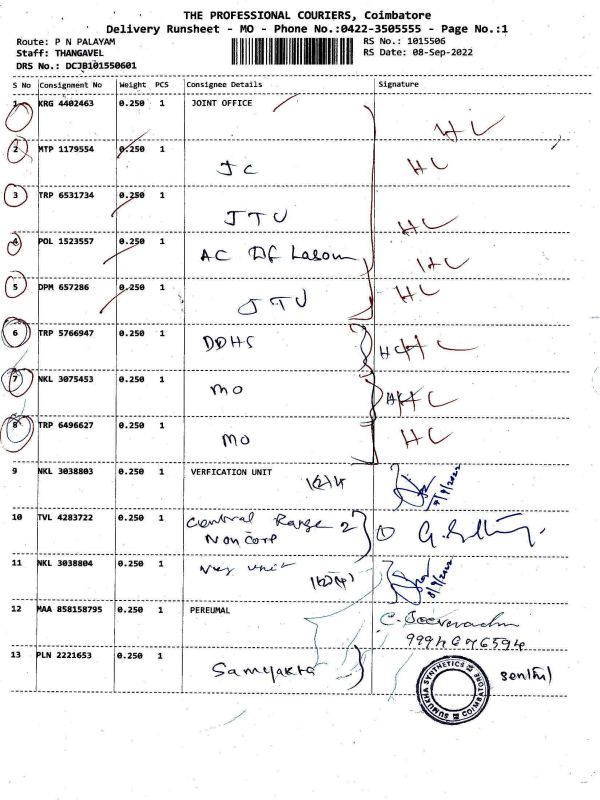 THE PROFESSIONAL COURIERS, Coimbatore
Delivery Runsheet - MO - Phone No.:0422-3505555 - Page No.:1
Route: P N PALAYAM
Staff: THANGAVEL
DRS No.: DCJB101550601
RS No.: 1015506
RS Date: 08-Sep-2022
S No Consignment No Weight PCS Consignee Details Signature
1 KRG 4402463 0.250 1 JOINT OFFICE
HC
2 MTP 1179554 0.250 1
JC HC
3 TRP 6531734 0.250 1
JTU HC
4 POL 1523557 0.250 1
AC Of Labour HC
5 DPM 657286 0.250 1
JTU HC
6 TRP 5766947 0.250 1
DDHS HC
7 NKL 3075453 0.250 1
MO HC
8 TRP 6496627 0.250 1
MO HC
9 NKL 3038803 0.250 1 VERFICATION UNIT
10 TVL 4283722 0.250 1 Central Range 2
Non Corp
11 NKL 3038804 0.250 1 unit
8/9/2022
12 MAA 858158795 0.250 1 PEREUMAL
9994676594
13 PLN 2221653 0.250 1
Samyakta
SUMUKHA SYNTHETICS COIMBATORE